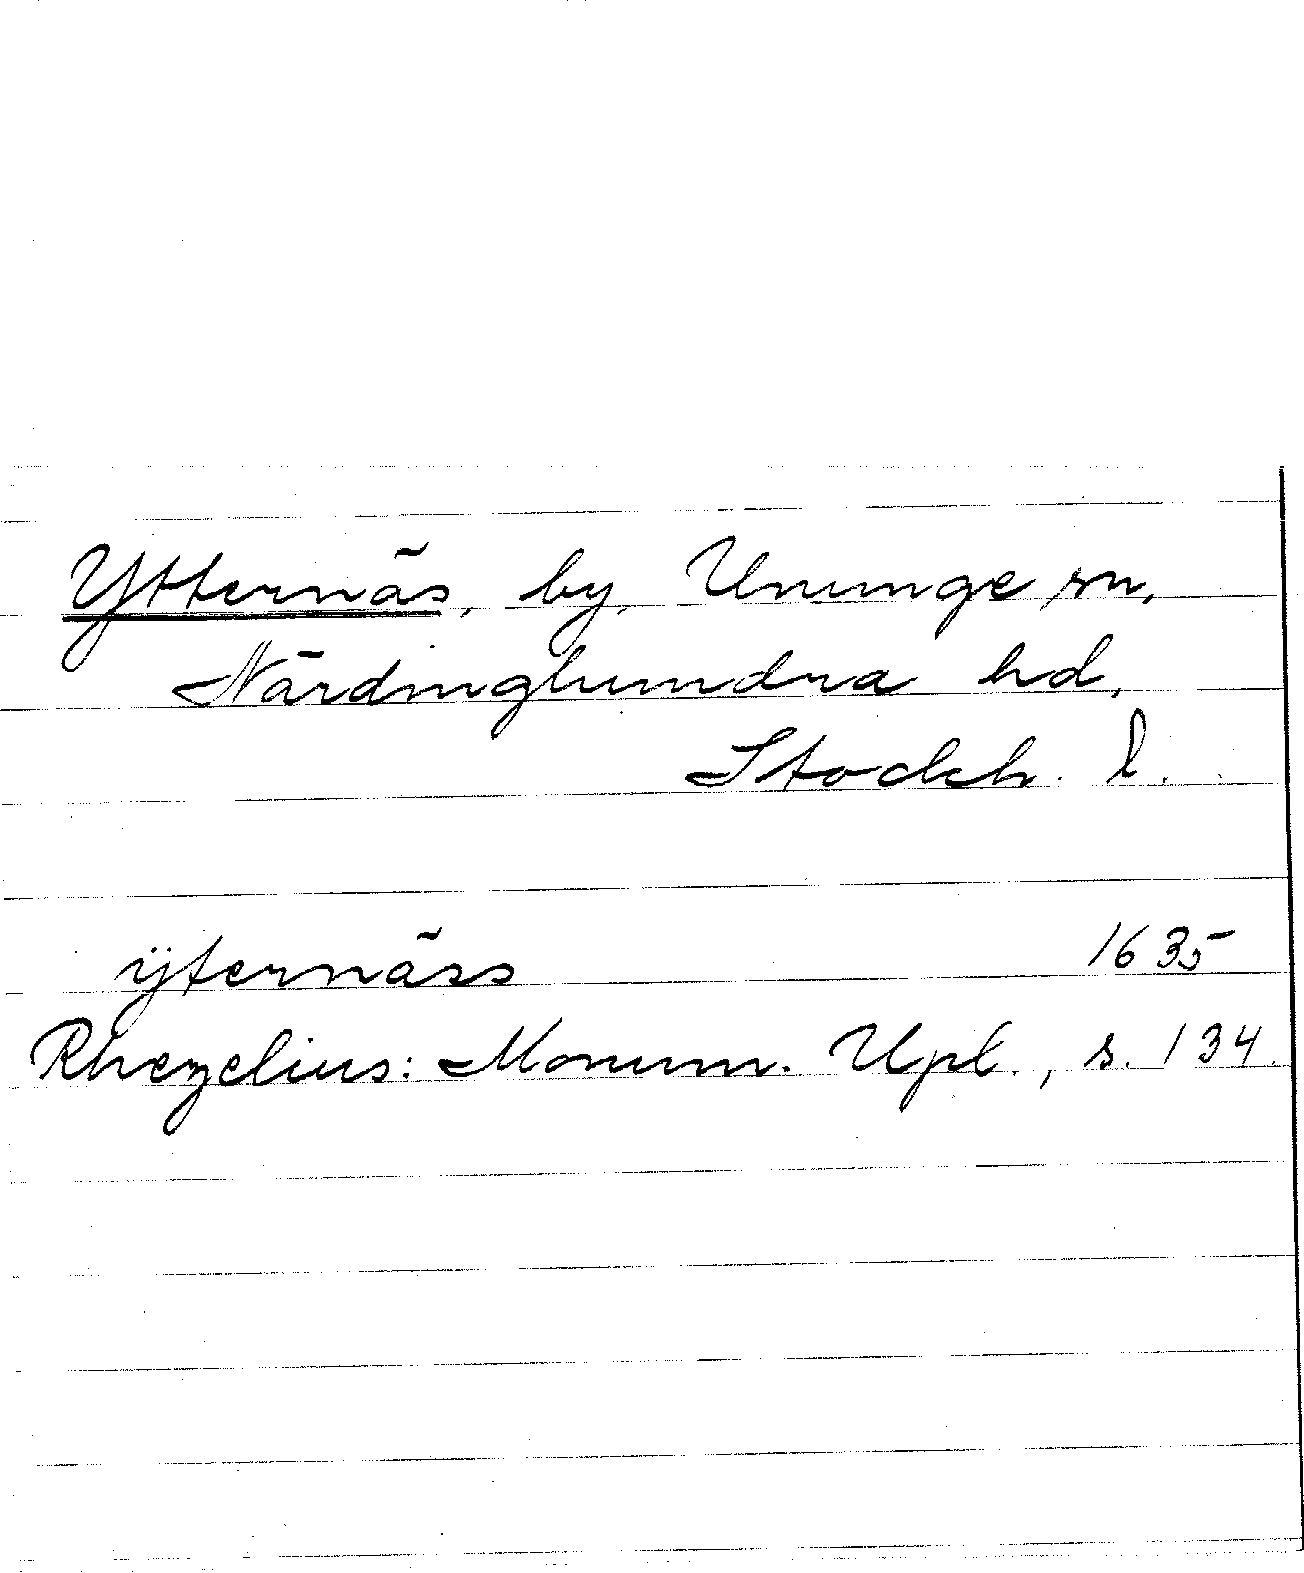 Ytternäs, by, Ununge sn,
Närdinghundra hd,
Stockh. l.
ÿternäss 1635
Rhezelius: Monum. Upl., s. 134.